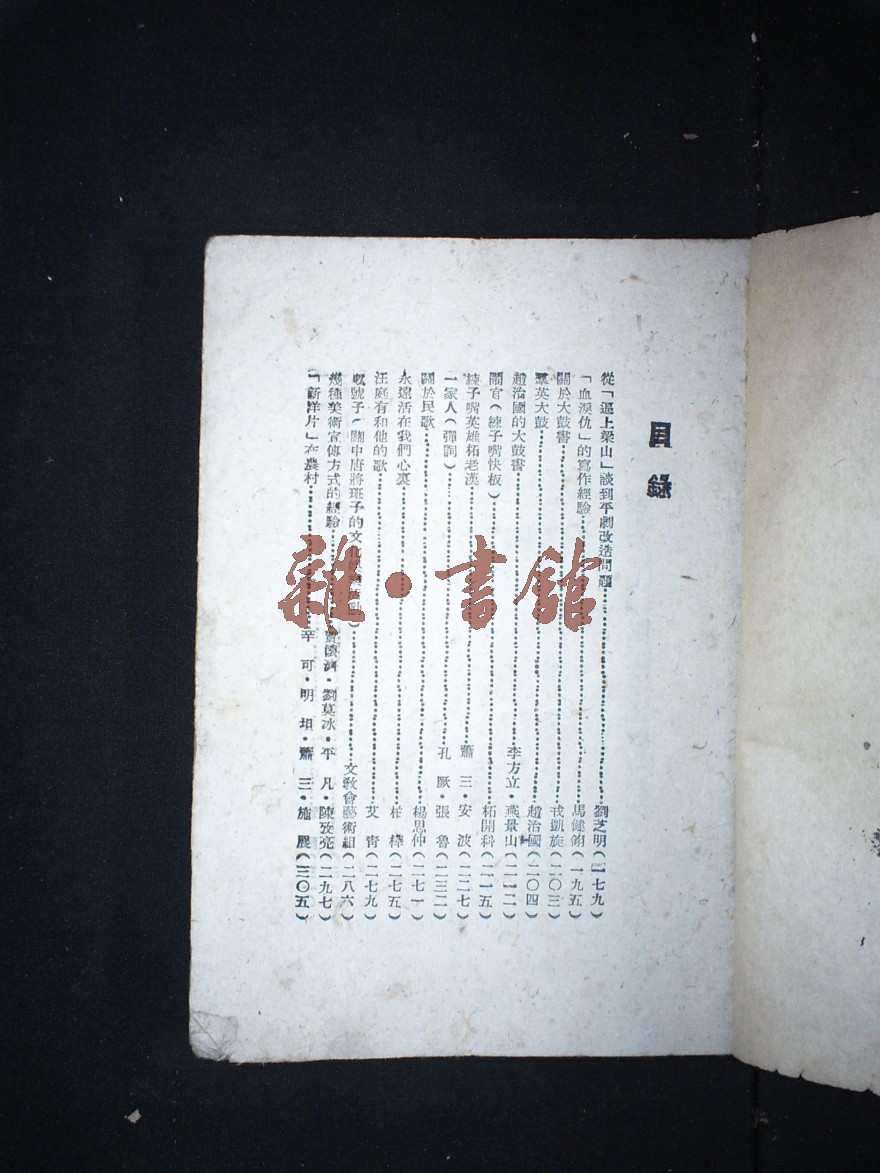 目錄
從「逼上梁山」談到平劇改造問題……劉芝明(一七九)
「血淚仇」的寫作經驗……馬健翎(一九五)
關於大鼓書……戎凱旋(二〇三)
羣英大鼓……趙治國(二〇四)
趙治國的大鼓書……李方立・燕景山(二一二)
鬧官(練子嘴快板)……柘開科(二一五)
練子嘴英雄柘老漢……蕭三・安波(二二七)
一家人(彈詞)……孔厥・張魯(二三二)
關於民歌……楊思仲(二七一)
永遠活在我們心裏……柏樺(二七五)
汪庭有和他的歌……艾青(二七九)
號子(關中唐將班子的文化……文敎會藝術組(二八六)
幾種美術宣傳方式的經驗……劉莫冰・平凡・陳叔亮(二九七)
「新洋片」在農村……辛可・明坦・蕭三・施展(三〇五)
雜・書館